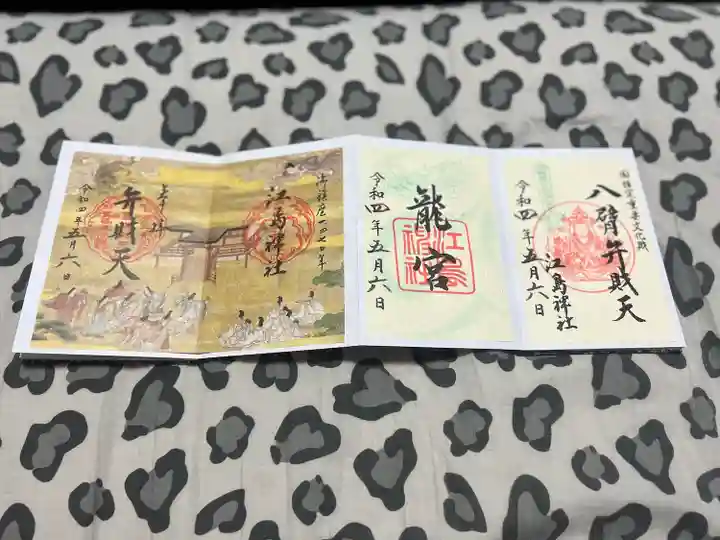 国指定重要文化財
八臂弁財天
江島神社
令和四年五月六日
龍宮
令和四年五月六日
江島神社
弁財天
令和四年五月六日